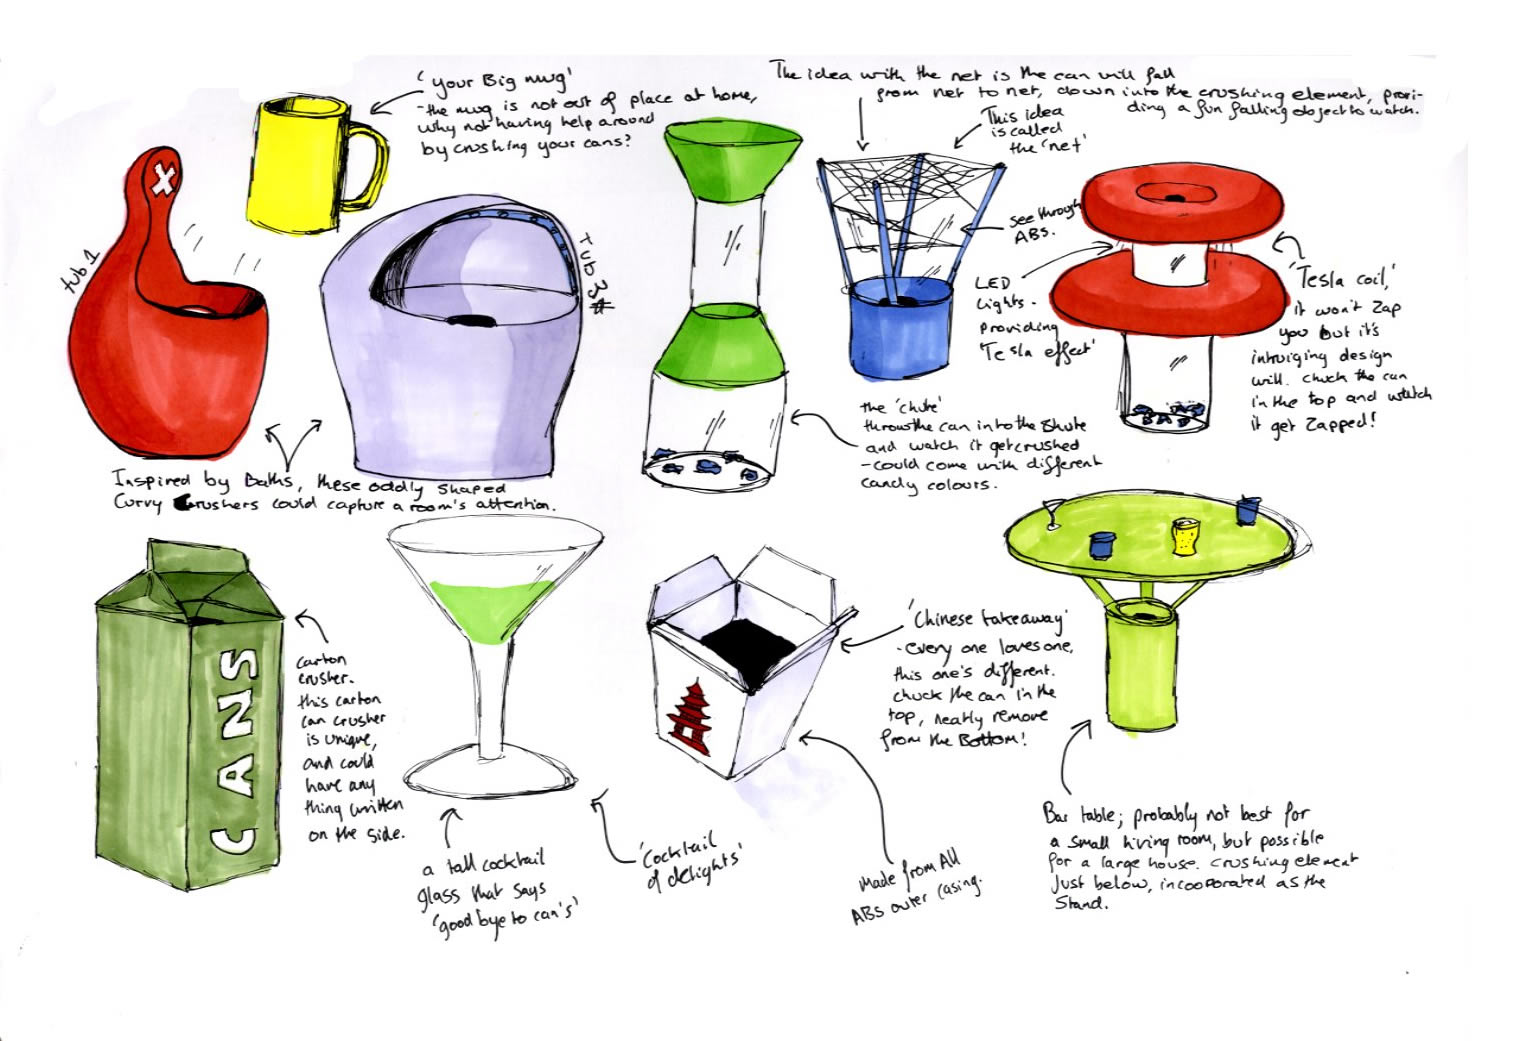 'your Big mug'
-the mug is not out of place at home,
why not having help around
by crushing your cans?
The idea with the net is the can will fall
from net to net, down into the crushing element, provi-
ding a fun falling object to watch.
This idea
is called
the 'net'
see through
ABS.
LED
lights -
providing
'Tesla effect'
'Tesla coil'
it won't zap
you but it's
intruiging design
will. chuck the can
in the top and watch
it get zapped!
tub 1
X
TUB 3
Inspired by Baths, these oddly shaped
curvy crushers could capture a room's attention.
the 'chute'
throw the can into the shute
and watch it get crushed
-could come with different
candy colours.
CANS
carton
crusher.
this carton
can crusher
is unique,
and could
have any
thing written
on the side.
a tall cocktail
glass that says
'good bye to can's'
'Cocktail
of delights'
'Chinese takeaway'
-every one loves one,
this one's different.
chuck the can in the
top, neatly remove
from the Bottom!
Made from All
ABS outer casing.
Bar table; probably not best for
a small living room, but possible
for a large house. crushing element
Just below, incooporated as the
Stand.